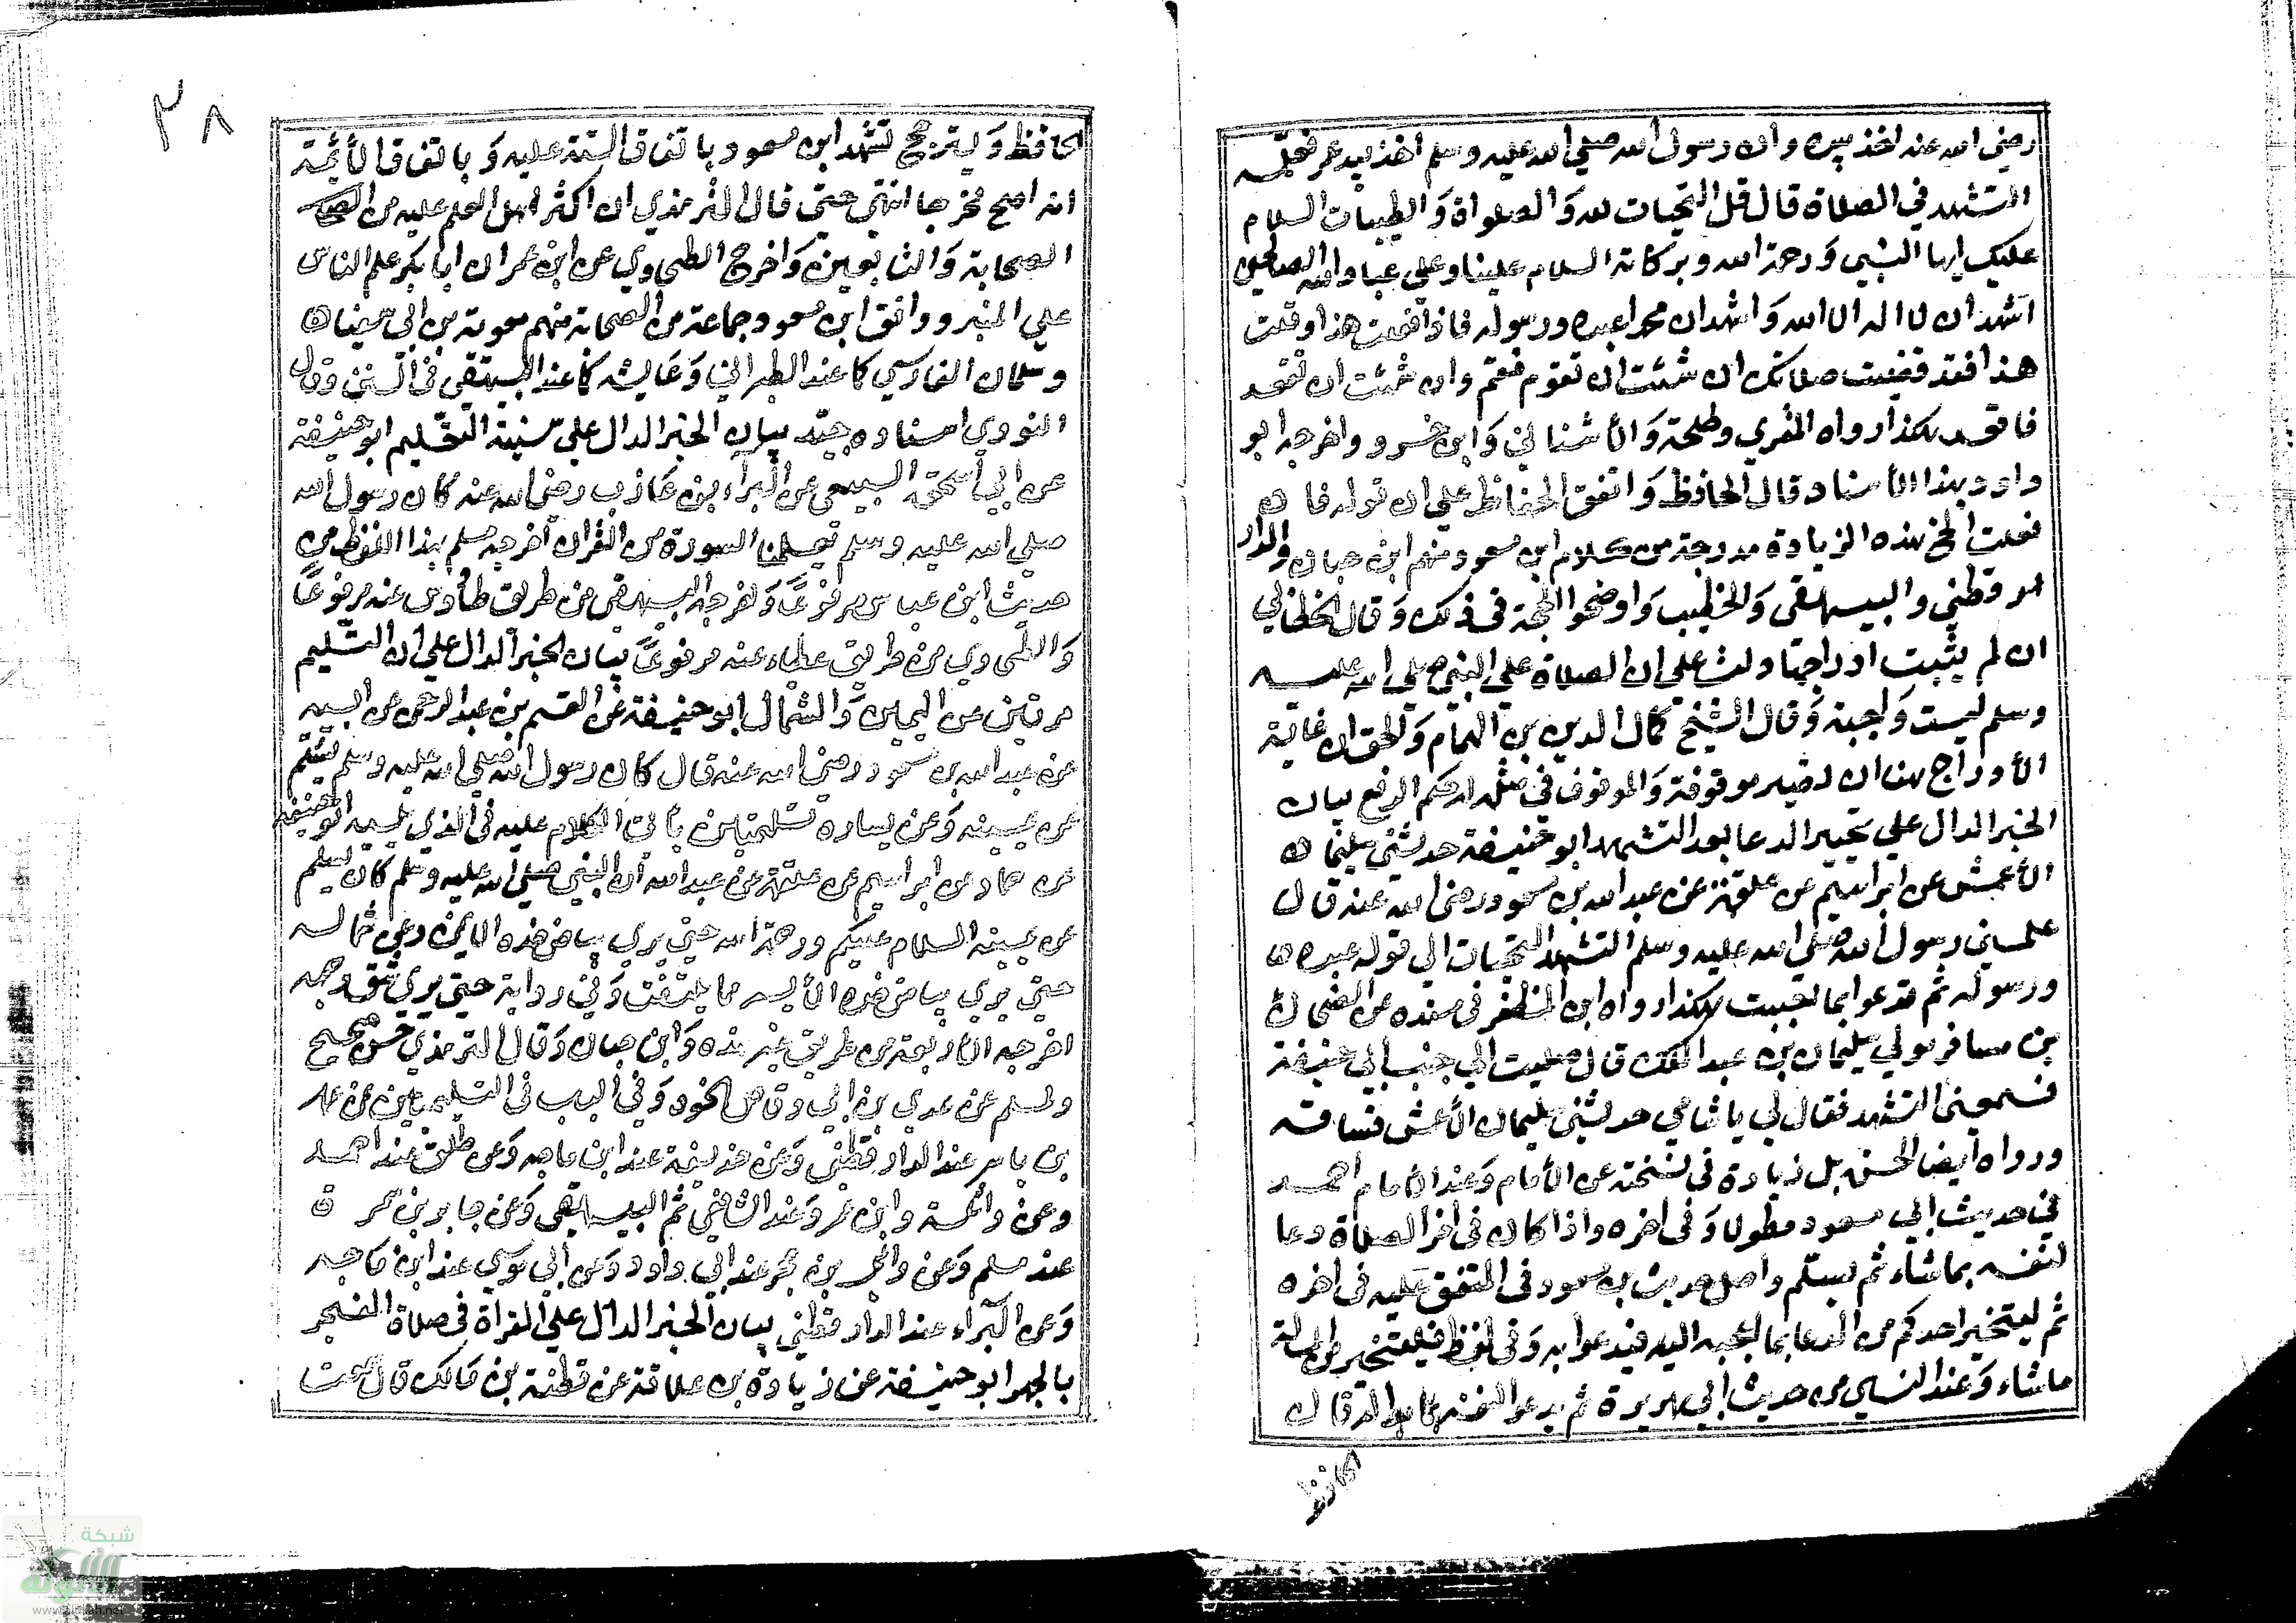 رضي الله عنه اخذ بيده وان رسول الله صلى الله عليه وسلم اخذ بيد عمر فعلمه
التشهد في الصلاة قال قل التحيات لله والصلواة والطيبات السلام
عليك ايها النبي ورحمة الله وبركاته السلام علينا وعلى عباد الله الصالحين
اشهد ان لا اله الا الله واشهد ان محمدا عبده ورسوله فاذا فعلت هذا او قلت
هذا فقد قضيت صلاتك ان شئت ان تقوم فقم وان شئت ان تقعد
فاقعد هكذا رواه المقري وطلحة والأشناني وابن خسرو واخرجه ابو
داود بهذا الأسناد قال الحافظ واتفق الحفاظ على ان قوله فان
فعلت الخ هذه الزيادة مدرجة من كلام ابن مسعود منهم ابن حبان والدار
قطني والبيهقي والخطيب واوضحوا الحجة في ذلك وقال الخطابي
ان لم يثبت ادراجها دلت على ان الصلاة على النبي صلى الله عليه
وسلم ليست واجبة وقال الشيخ كمال الدين بن الهمام والحق ان غاية
الأدراج هنا ان تصير موقوفة والموقوف في مثله له حكم الرفع بيان
الخبر الدال على تخيير الدعا بعد التشهد ابو حنيفة حدثني سليمان
الأعمش عن ابراهيم عن علقمة عن عبد الله بن مسعود رضي الله عنه قال
علمني رسول الله صلى الله عليه وسلم التشهد التحيات الى قوله عبده
ورسوله ثم تدعوا بما احببت هكذا رواه ابن المظفر في مسنده عن الضحاك
بن مسافر مولي سليمان بن عبد الملك قال صليت الي جنب ابي حنيفة
فسمعني التشهد فقال لي يا شامي حدثني سليمان الأعمش فساقه
ورواه ايضا الحسن بن زياد في نسخته عن الأمام وعند الأمام احمد
في حديث ابن مسعود مطولا وفي اخره واذا كان في اخر الصلاة دعا
لنفسه بما شاء ثم يسلم واصل حديث بن مسعود في المتفق عليه في اخره
ثم ليتخير احدكم من الدعا بما اعجبه اليه فيدعوا به وفي لفظ فليتخير من المسئلة
ما شاء وعند النسي من حديث ابي هريرة ثم يدعوا لنفسه بما بدا له قال
الحافظ
٣٨
الحافظ ويترجح تشهد ابن مسعود باتفاق الستة عليه وباتفاق الأئمة
انه اصح مخرجا انتهى حتى قال الترمذي ان اكثر اهل العلم عليه من
الصحابة والتابعين واخرج الطحاوي عن ابن عمر ان ابا بكر علم الناس
علي المنبر ووافق ابن مسعود جماعة من الصحابة منهم معوية بن ابي سفيان
وسلمان الفارسي كما عند الطبراني وعايشه كما عند البيهقي في السنن وقال
النووي اسناده جيد بيان الخبر الدال على سنية التعليم ابو حنيفة
عن ابي اسحق السبيعي عن البراء بن عازب رضي الله عنه كان رسول الله
صلى الله عليه وسلم تعلمنا السورة من القران اخرجه مسلم بهذا اللفظ من
حديث ابن عباس مرفوعا واخرجه البيهقي من طريق طاوس عنه مرفوعا
والطحاوي من طريق عطاء عنه مرفوعا بيان الخبر الدال على ان التسليم
مرتين عن اليمين والشمال ابو حنيفة عن القسم بن عبد الرحمن عن ابيه
عن عبد الله بن مسعود رضي الله عنه قال كان رسول الله صلى الله عليه وسلم يسلم
عن يمينه وعن يساره تسليمتين ياتي الكلام عليه في الذي يليه ابو حنيفة
عن حماد عن ابراهيم عن علقمة عن عبد الله ان النبي صلى الله عليه وسلم كان يسلم
عن يمينه السلام عليكم ورحمة الله حتى يري بياض خده الأيمن وعن شماله
حتى يري بياض خده الأيسر مما يلتفت وفي رواية حتى يري شق وجهه
اخرجه الأربعة من طريق غير هذه وابن حبان وقال الترمذي حسن صحيح
ولمسلم عن عدي بن ابي وقاص نحوه وفي الباب في التسليمتين عن عمار
بن ياسر عند الدار قطني وعن حذيفة عند ابن ماجه وعن طلق عند احمد
وعن واثلة وابن عمر وعند الشافعي ثم البيهقي وعن جابر بن سمرة
عند مسلم وعن وائل بن حجر عند ابي داود وعن ابي موسى عند ابن ماجه
وعن البراء عند الدار قطني بيان الخبر الدال علي القراة في صلاة الفجر
بالجهر ابو حنيفة عن زيادة بن علاقة عن قطبة بن مالك قال سمعت
شبكة
الألوكة
www.alukah.net